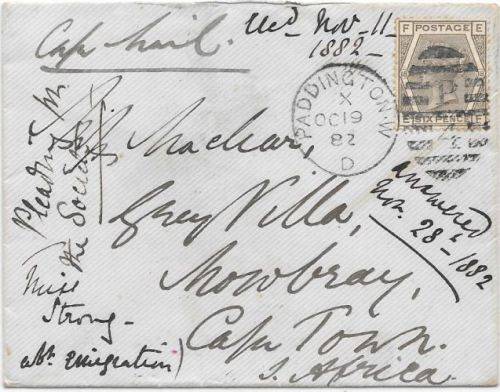 Cape Mail.
recd Nov. 11 -
1882 -
F POSTAGE E
E SIXPENCE F
PADDINGTON.W
X
OC 19
82
D
P
Maclear,
Grey Villa,
Mowbray,
Cape Town.
S. Africa.
answered
Nov. 28 - 1882
Reading
the Society
Miss
Strong -
abt Emigration)